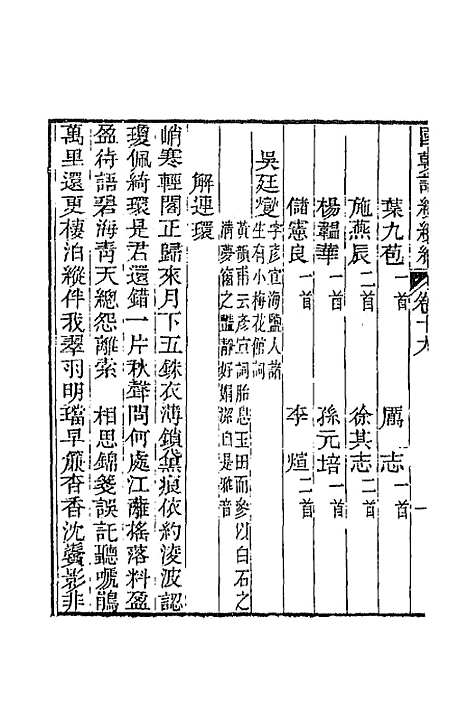 國朝詞綜續編 卷十九 一
葉九苞一首 厲志一首
施燕辰二首 徐其志二首
楊韞華一首 孫元培一首
儲憲良一首 李煊二首
吳廷燮字彥宣海鹽人諸生有小梅花館詞
黃韻甫云彥宣詞胎息玉田而參以白石之
清夢窗之豔靜好娟潔自是雅音
解連環
峭寒輕閣正歸來月下五銖衣薄鎖黛痕依約淩波認
瓊佩綺環是君還錯一片秋聲問何處江蘺搖落料盈
盈待語碧海青天總怨離索 相思錦箋誤託聽嗁鵑
萬里還更棲泊縱伴我翠羽明璫早蘼杳香沈鸞影非